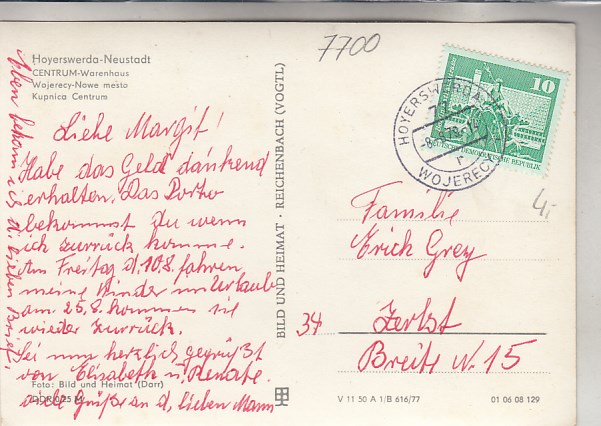 7700
Hoyerswerda-Neustadt
CENTRUM-Warenhaus
Wojerecy-Nowe mešto
Kupnica Centrum
Liebe Margit!
Habe das Geld dankend
erhalten. Das Porto
bekommst Du wenn
ich zurrück komme.
Am Freitag d. 10.8. fahren
meine Kinder in Urlaub
am 25.8. kommen sie
wieder zurrück.
Sei nun herzlich gegrüßt
von Elisabeth u. Renate.
viele Grüße an d. lieben Mann
Eben bekom ich d. lieben Brief,
Foto: Bild und Heimat (Darr)
BILD UND HEIMAT · REICHENBACH (VOGTL)
10
DEUTSCHE DEMOKRATISCHE REPUBLIK
HOYERSWERDA
WOJERECY
4,-
Familie
Erich Grey
34 Zerbst
Breite N. 15
V 11 50 A 1/B 616/77
01 06 08 129